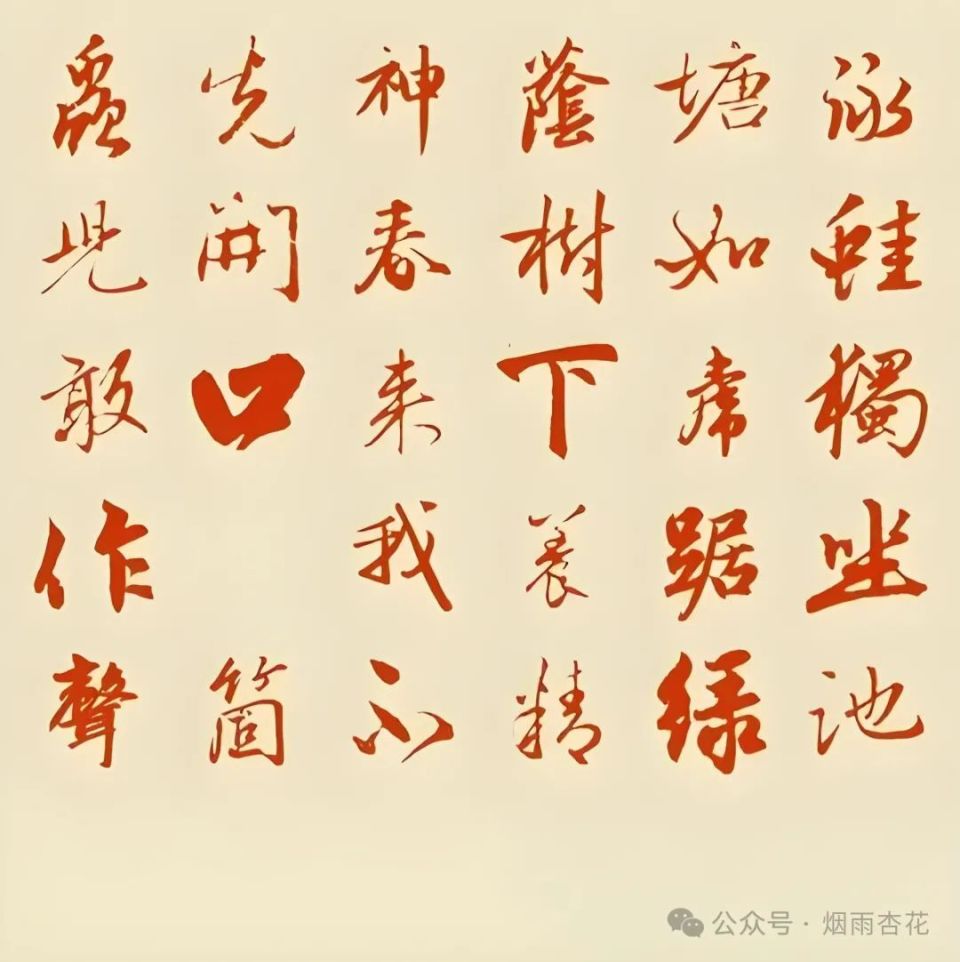 詠蛙獨坐池
塘如虎踞綠
蔭樹下養精
神春來我不
先開口 箇
蟲兒敢作聲
公众号 · 烟雨杏花